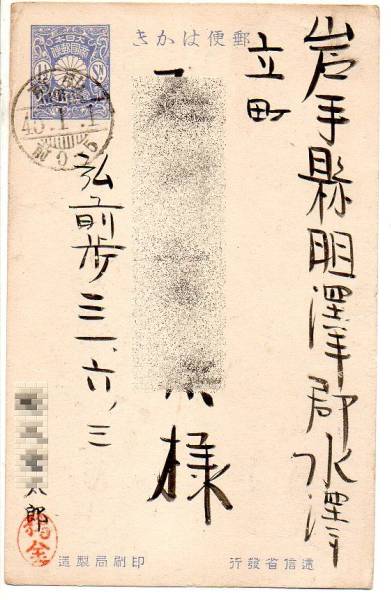 郵便はかき
岩手縣胆澤郡水澤
立町
様
弘前歩三一、六ノ三
太郎
45.1.1
遞信省發行
印刷局製造